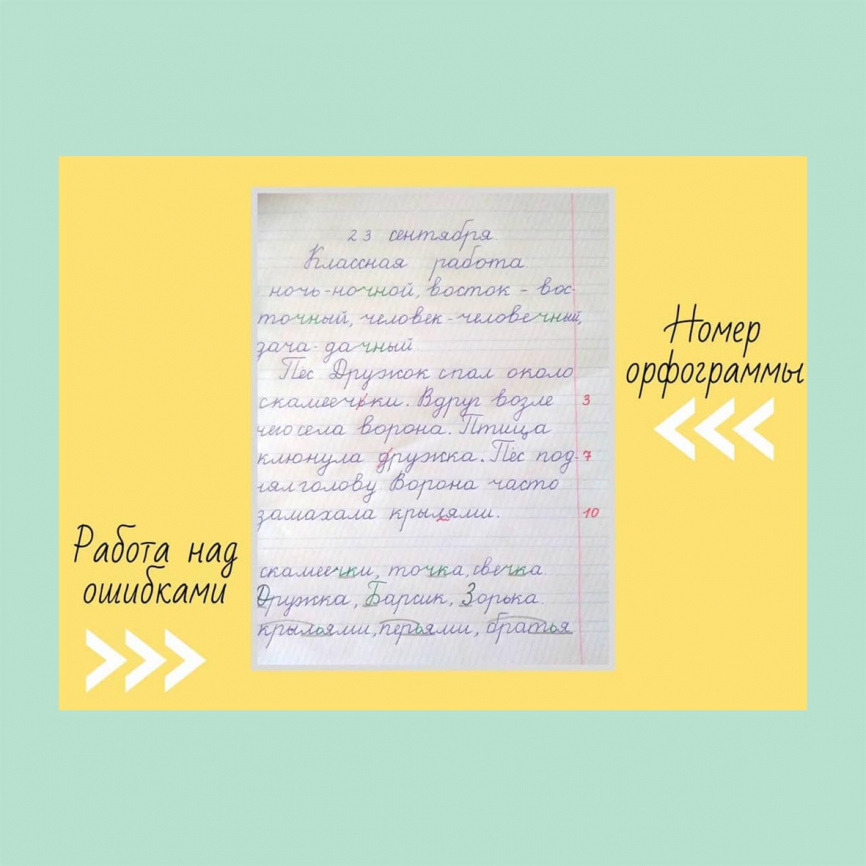 23 сентября
Классная работа
ночь-ночной, восток - вос-
точный, человек-человечный,
дача-дачный
Пёс Дружок спал около
скамеечьки. Вдруг возле 3
него села ворона. Птица
клюнула дружка. Пёс под- 7
нял голову Ворона часто
замахала крылями. 10
скамеечки, точка, свечка
Дружка, Барсик, Зорька.
крыльями, перьями, братья
Номер
орфограммы
Работа над
ошибками